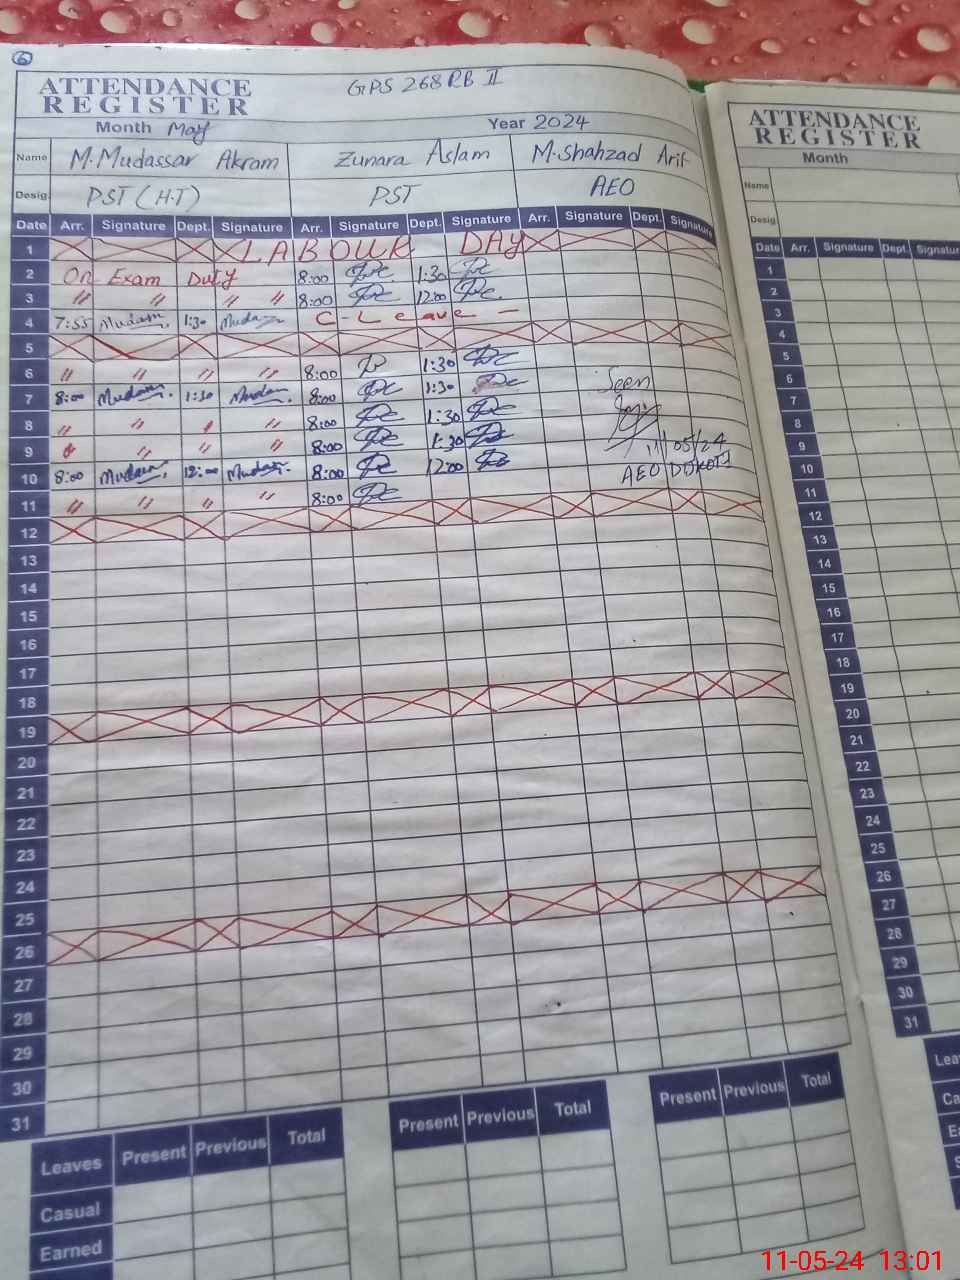 6
ATTENDANCE REGISTER
GPS 268 RB II
Month May Year 2024
Name M.Mudassar Akram Zunara Aslam M.Shahzad Arif
Desig. PST (H.T) PST AEO
Date Arr. Signature Dept. Signature Arr. Signature Dept. Signature Arr. Signature Dept. Signature
1 LABOUR DAY
2 On Exam Duty 8:00 1:30
3 " " " " 8:00 12:00
4 7:55 Mudassar 1:30 C-Leave -
5
6 " " " " 8:00 1:30
7 8:00 1:30 8:00 1:30 Seen
8 " " " " 8:00 1:30
9 " " " " 8:00 1:30 11/05/24
10 8:00 12:00 8:00 12:00 AEO
11 " " " " 8:00
12
13
14
15
16
17
18
19
20
21
22
23
24
25
26
27
28
29
30
31
Leaves Present Previous Total Present Previous Total Present Previous Total
Casual
Earned
ATTENDANCE
REGISTER
Month
Name
Desig.
Date Arr. Signature Dept. Signatur
1
2
3
4
5
6
7
8
9
10
11
12
13
14
15
16
17
18
19
20
21
22
23
24
25
26
27
28
29
30
31
Lea
Ca
11-05-24 13:01